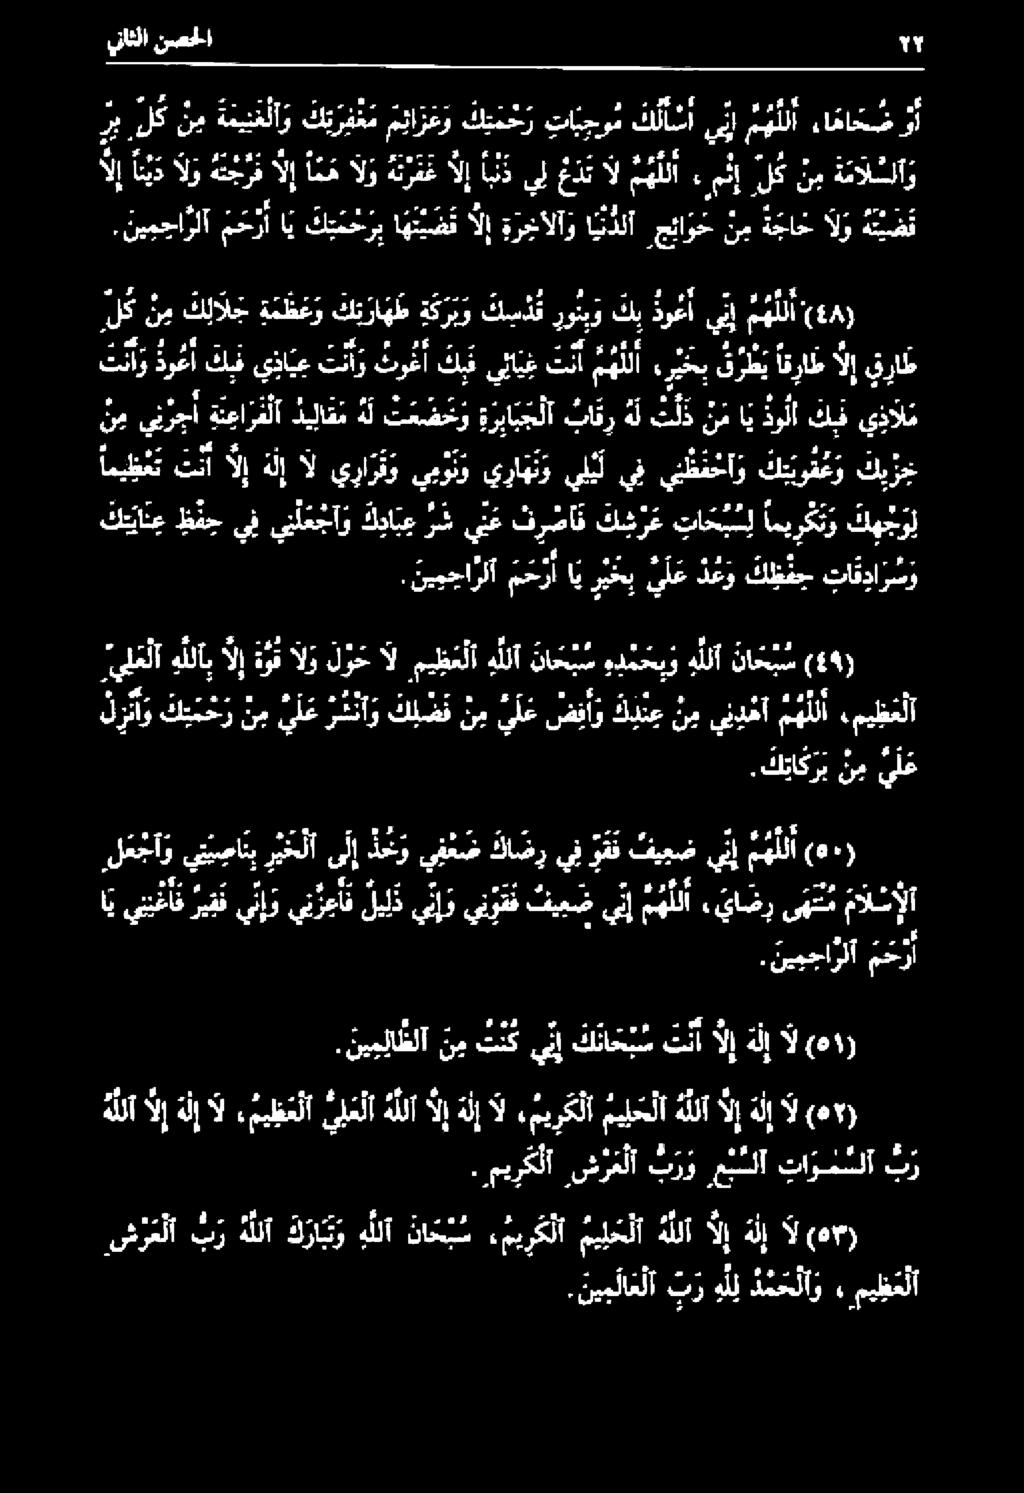 ٢٢ الحصن الثاني
أَوْ ضُحَاهَا، أَللَّهُمَّ إِنِّي أَسْأَلُكَ مُوجِبَاتِ رَحْمَتِكَ وَعَزَائِمَ مَغْفِرَتِكَ وَٱلْغَنِيمَةَ مِنْ كُلِّ بِرٍّ
وَٱلسَّلاَمَةَ مِنْ كُلِّ إِثْمٍ، أَللَّهُمَّ لاَ تَدَعْ لِي ذَنْباً إِلاَّ غَفَرْتَهُ وَلاَ هَمّاً إِلاَّ فَرَّجْتَهُ وَلاَ دَيْناً إِلاَّ
قَضَيْتَهُ وَلاَ حَاجَةً مِنْ حَوَائِجِ ٱلدُّنْيَا وَٱلآخِرَةِ إِلاَّ قَضَيْتَهَا بِرَحْمَتِكَ يَا أَرْحَمَ ٱلرَّاحِمِينَ.
(٤٨) أَللَّهُمَّ إِنِّي أَعُوذُ بِكَ وَبِنُورِ قُدْسِكَ وَبَرَكَةِ طَهَارَتِكَ وَعَظَمَةِ جَلاَلِكَ مِنْ كُلِّ
طَارِقٍ إِلاَّ طَارِقاً يَطْرُقُ بِخَيْرٍ، أَللَّهُمَّ أَنْتَ غِيَاثِي فَبِكَ أَغُوثُ وَأَنْتَ عِيَاذِي فَبِكَ أَعُوذُ وَأَنْتَ
مَلاَذِي فَبِكَ أَلُوذُ يَا مَنْ ذَلَّتْ لَهُ رِقَابُ ٱلْجَبَابِرَةِ وَخَضَعَتْ لَهُ مَقَالِيدُ ٱلْفَرَاعِنَةِ أَجِرْنِي مِنْ
خِزْيِكَ وَعُقُوبَتِكَ وَٱحْفَظْنِي فِي لَيْلِي وَنَهَارِي وَنَوْمِي وَقَرَارِي لاَ إِلٰهَ إِلاَّ أَنْتَ تَعْظِيماً
لِوَجْهِكَ وَتَكْرِيماً لِسُبُحَاتِ عَرْشِكَ فَٱصْرِفْ عَنِّي شَرَّ عِبَادِكَ وَٱجْعَلْنِي فِي حِفْظِ عِنَايَتِكَ
وَسُرَادِقَاتِ حِفْظِكَ وَعُدْ عَلَيَّ بِخَيْرٍ يَا أَرْحَمَ ٱلرَّاحِمِينَ.
(٤٩) سُبْحَانَ ٱللَّهِ وَبِحَمْدِهِ سُبْحَانَ ٱللَّهِ ٱلْعَظِيمِ لاَ حَوْلَ وَلاَ قُوَّةَ إِلاَّ بِٱللَّهِ ٱلْعَلِيِّ
ٱلْعَظِيمِ، أَللَّهُمَّ ٱهْدِنِي مِنْ عِنْدِكَ وَأَفِضْ عَلَيَّ مِنْ فَضْلِكَ وَٱنْشُرْ عَلَيَّ مِنْ رَحْمَتِكَ وَأَنْزِلْ
عَلَيَّ مِنْ بَرَكَاتِكَ.
(٥٠) أَللَّهُمَّ إِنِّي ضَعِيفٌ فَقَوِّ فِي رِضَاكَ ضَعْفِي وَخُذْ إِلَى ٱلْخَيْرِ بِنَاصِيَتِي وَٱجْعَلِ
ٱلإِسْلاَمَ مُنْتَهَى رِضَايَ، أَللَّهُمَّ إِنِّي ضَعِيفٌ فَقَوِّنِي وَإِنِّي ذَلِيلٌ فَأَعِزَّنِي وَإِنِّي فَقِيرٌ فَأَغْنِنِي يَا
أَرْحَمَ ٱلرَّاحِمِينَ.
(٥١) لاَ إِلٰهَ إِلاَّ أَنْتَ سُبْحَانَكَ إِنِّي كُنْتُ مِنَ ٱلظَّالِمِينَ.
(٥٢) لاَ إِلٰهَ إِلاَّ ٱللَّهُ ٱلْحَلِيمُ ٱلْكَرِيمُ، لاَ إِلٰهَ إِلاَّ ٱللَّهُ ٱلْعَلِيُّ ٱلْعَظِيمُ، لاَ إِلٰهَ إِلاَّ ٱللَّهُ
رَبُّ ٱلسَّمٰوَاتِ ٱلسَّبْعِ وَرَبُّ ٱلْعَرْشِ ٱلْكَرِيمِ.
(٥٣) لاَ إِلٰهَ إِلاَّ ٱللَّهُ ٱلْحَلِيمُ ٱلْكَرِيمُ، سُبْحَانَ ٱللَّهِ وَتَبَارَكَ ٱللَّهُ رَبُّ ٱلْعَرْشِ
ٱلْعَظِيمِ، وَٱلْحَمْدُ لِلَّهِ رَبِّ ٱلْعَالَمِينَ.